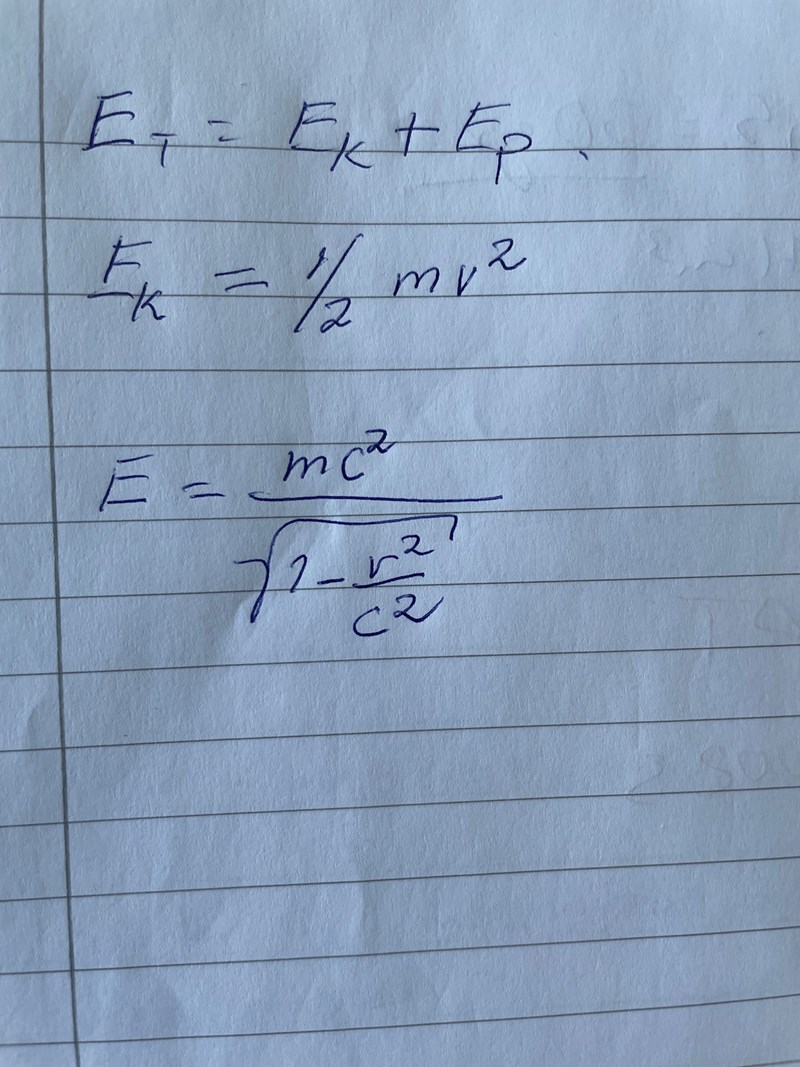 E_T = E_K + E_P .
E_K = 1/2 mv²
E = mc² / √(1 - v²/c²)